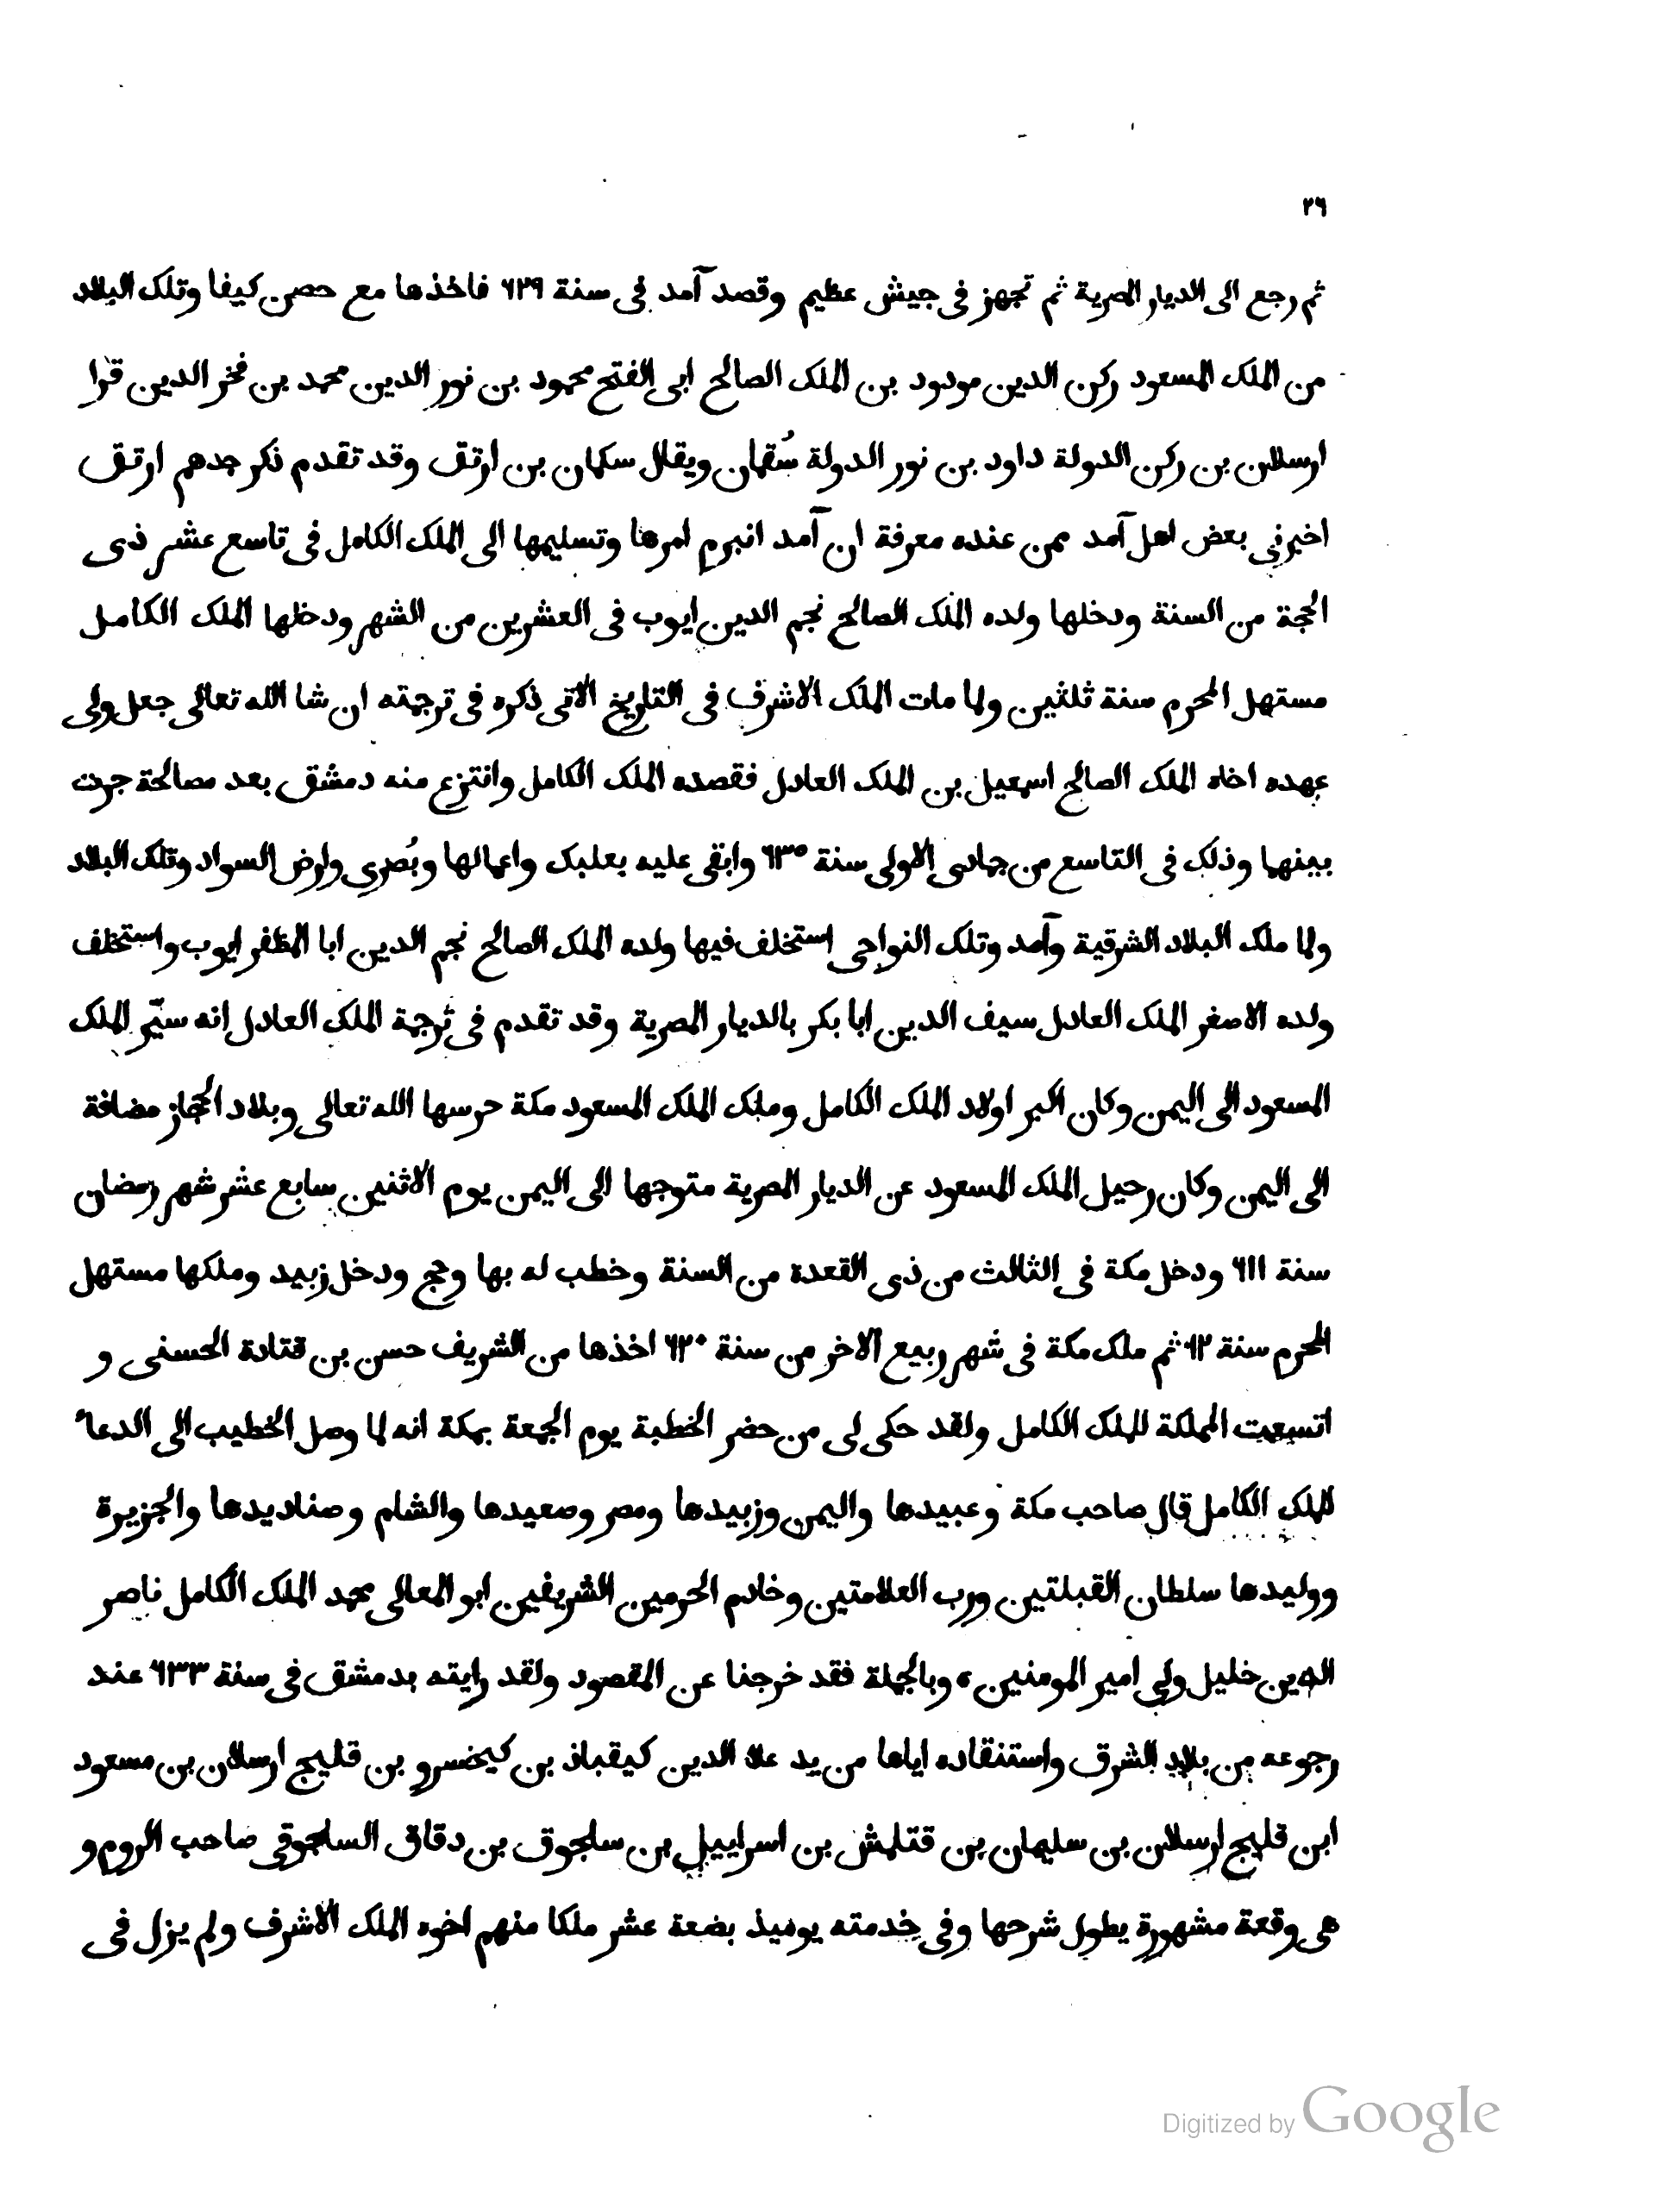 ٢٦
ثم رجع الى الديار المصرية ثم تجهز فى جيش عظيم وقصد آمد فى سنة ٦٢٩ فاخذها مع حصن كيفا وتلك البلاد
من الملك المسعود ركن الدين مودود بن الملك الصالح ابى الفتح محمود بن نور الدين محمد بن فخر الدين قرا
ارسلان بن ركن الدولة داود بن نور الدولة سُقمان ويقال سكمان بن ارتق وقد تقدم ذكر جدهم ارتق
اخبرنى بعض اهل آمد ممن عنده معرفة ان آمد انبرم امرها وتسليمها الى الملك الكامل فى تاسع عشر ذى
الحجة من السنة ودخلها ولده الملك الصالح نجم الدين ايوب فى العشرين من الشهر ودخلها الملك الكامل
مستهل المحرم سنة ثلثين ولما مات الملك الاشرف فى التاريخ الاتى ذكره فى ترجمته ان شا الله تعالى جعل ولى
عهده اخاه الملك الصالح اسمعيل بن الملك العادل فقصده الملك الكامل وانتزع منه دمشق بعد مصالحة جرت
بينهما وذلك فى التاسع من جمادى الاولى سنة ٦٣٥ وابقى عليه بعلبك واعمالها وبُصرى وارض السواد وتلك البلاد
ولما ملك البلاد الشرقية وآمد وتلك النواحى استخلف فيها ولده الملك الصالح نجم الدين ابا المظفر ايوب واستخلف
ولده الاصغر الملك العادل سيف الدين ابا بكر بالديار المصرية وقد تقدم فى ترجمة الملك العادل انه سيّر الملك
المسعود الى اليمن وكان اكبر اولاد الملك الكامل وملك الملك المسعود مكة حرسها الله تعالى وبلاد الحجاز مضافة
الى اليمن وكان رحيل الملك المسعود عن الديار المصرية متوجها الى اليمن يوم الاثنين سابع عشر شهر رمضان
سنة ٦١١ ودخل مكة فى الثالث من ذى القعدة من السنة وخطب له بها وحج ودخل زبيد وملكها مستهل
المحرم سنة ٦١٢ ثم ملك مكة فى شهر ربيع الاخر من سنة ٦٢٠ اخذها من الشريف حسن بن قتادة الحسنى و
اتسعت المملكة للملك الكامل ولقد حكى لى من حضر الخطبة يوم الجمعة بمكة انه لما وصل الخطيب الى الدعاء
للملك الكامل قال صاحب مكة وعبيدها واليمن وزبيدها ومصر وصعيدها والشام وصناديدها والجزيرة
ووليدها سلطان القبلتين ورب العلامتين وخادم الحرمين الشريفين ابو المعالى محمد الملك الكامل ناصر
الدين خليل ولى امير المومنين، وبالجملة فقد خرجنا عن المقصود ولقد رايته بدمشق فى سنة ٦٣٣ عند
رجوعه من بلاد الشرق واستنقاده اياها من يد علا الدين كيقباذ بن كيخسرو بن قليج ارسلان بن مسعود
ابن قليج ارسلان بن سليمان بن قتلمش بن اسراييل بن سلجوق بن دقاق السلجوقى صاحب الروم و
هى وقعة مشهورة يطول شرحها وفى خدمته يوميذ بضعة عشر ملكا منهم اخوه الملك الاشرف ولم يزل فى
Digitized by Google